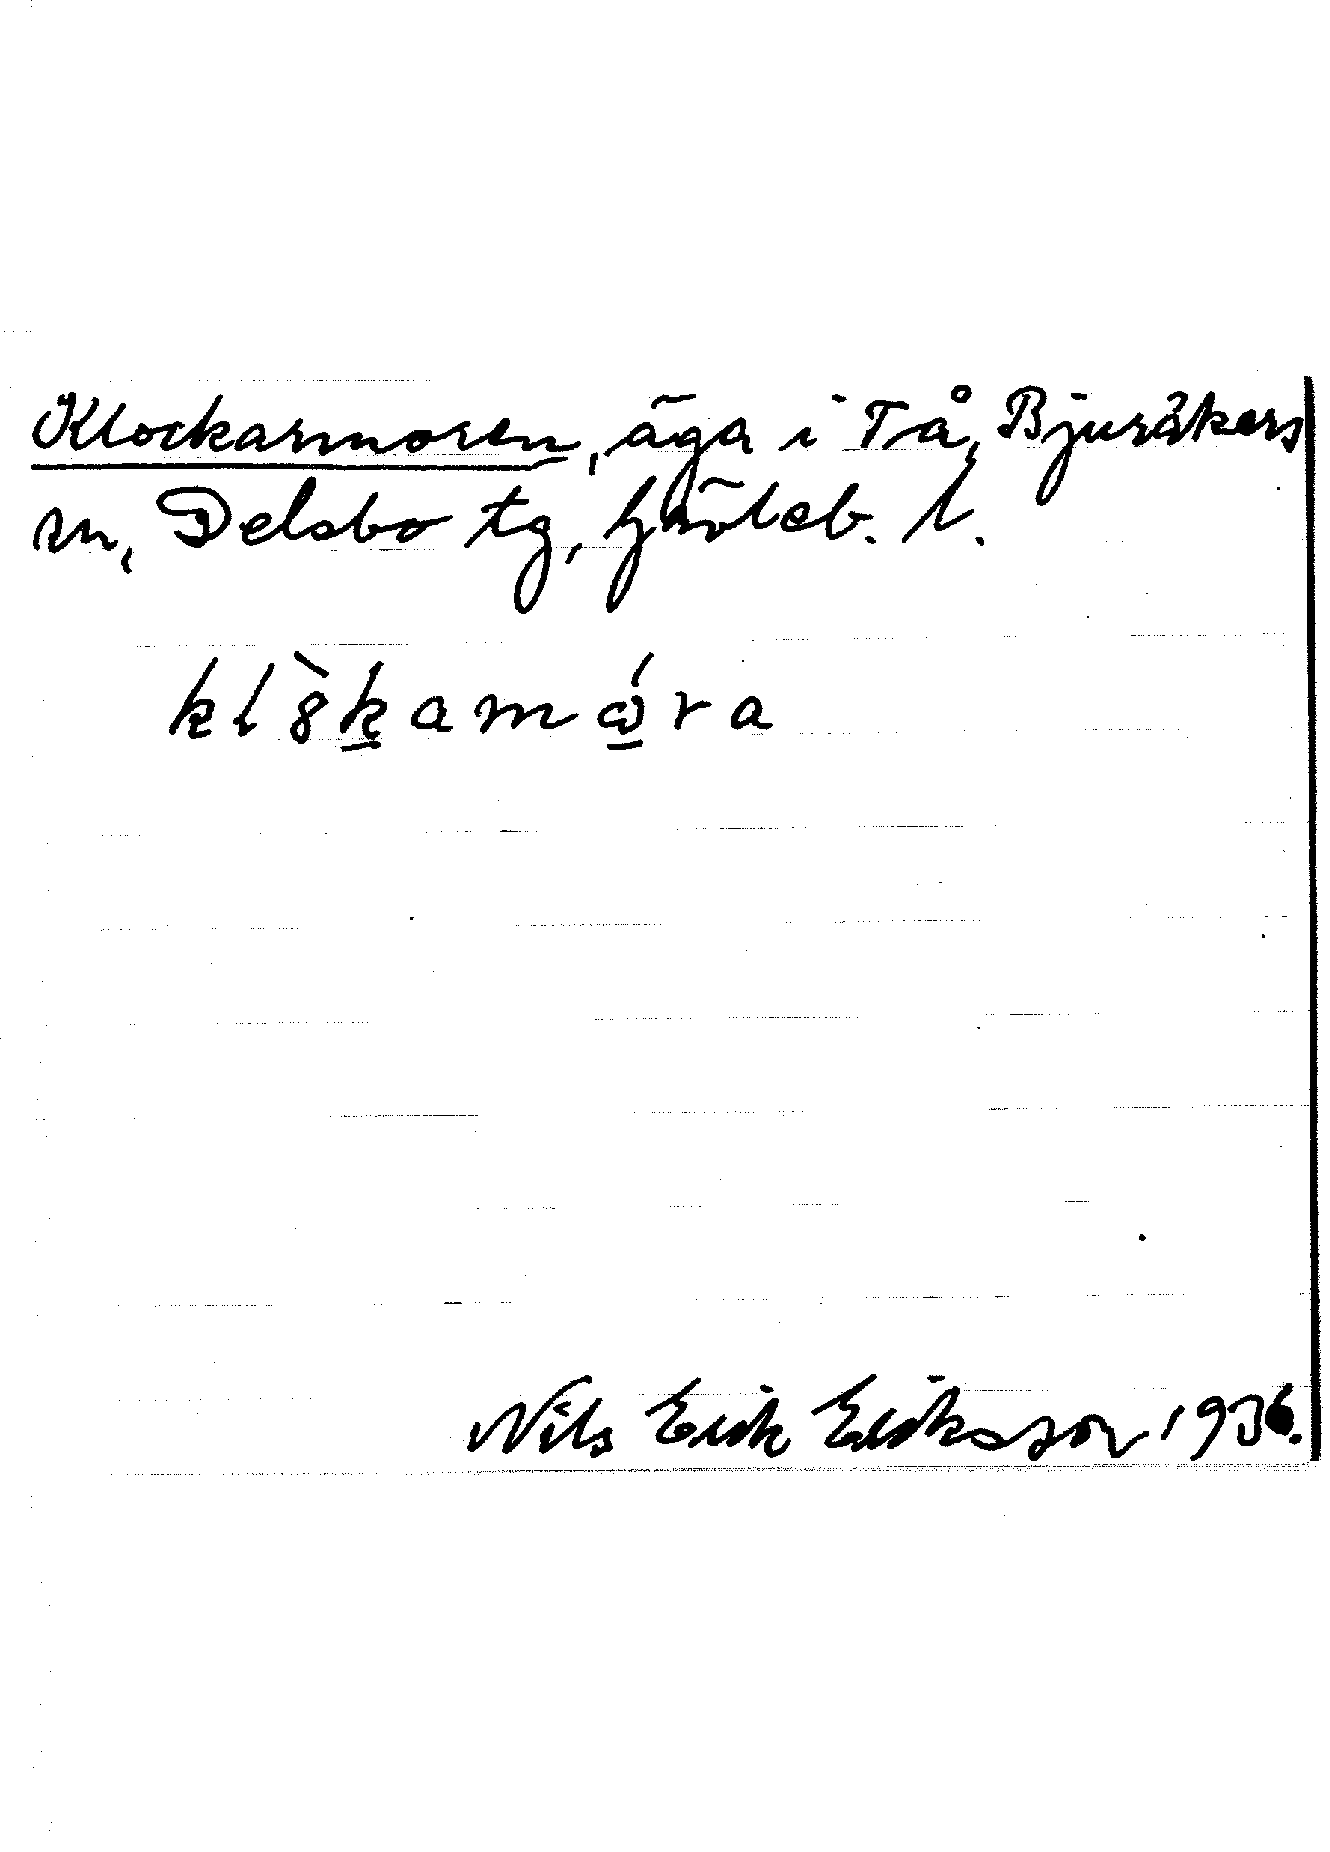 Klockarmoren, äga i Tå, Bjuråkers
sn, Delsbo tg, Gävleb. l.
kl8̀k̲amώ̲ra
Nils Erik Eriksson 1936.